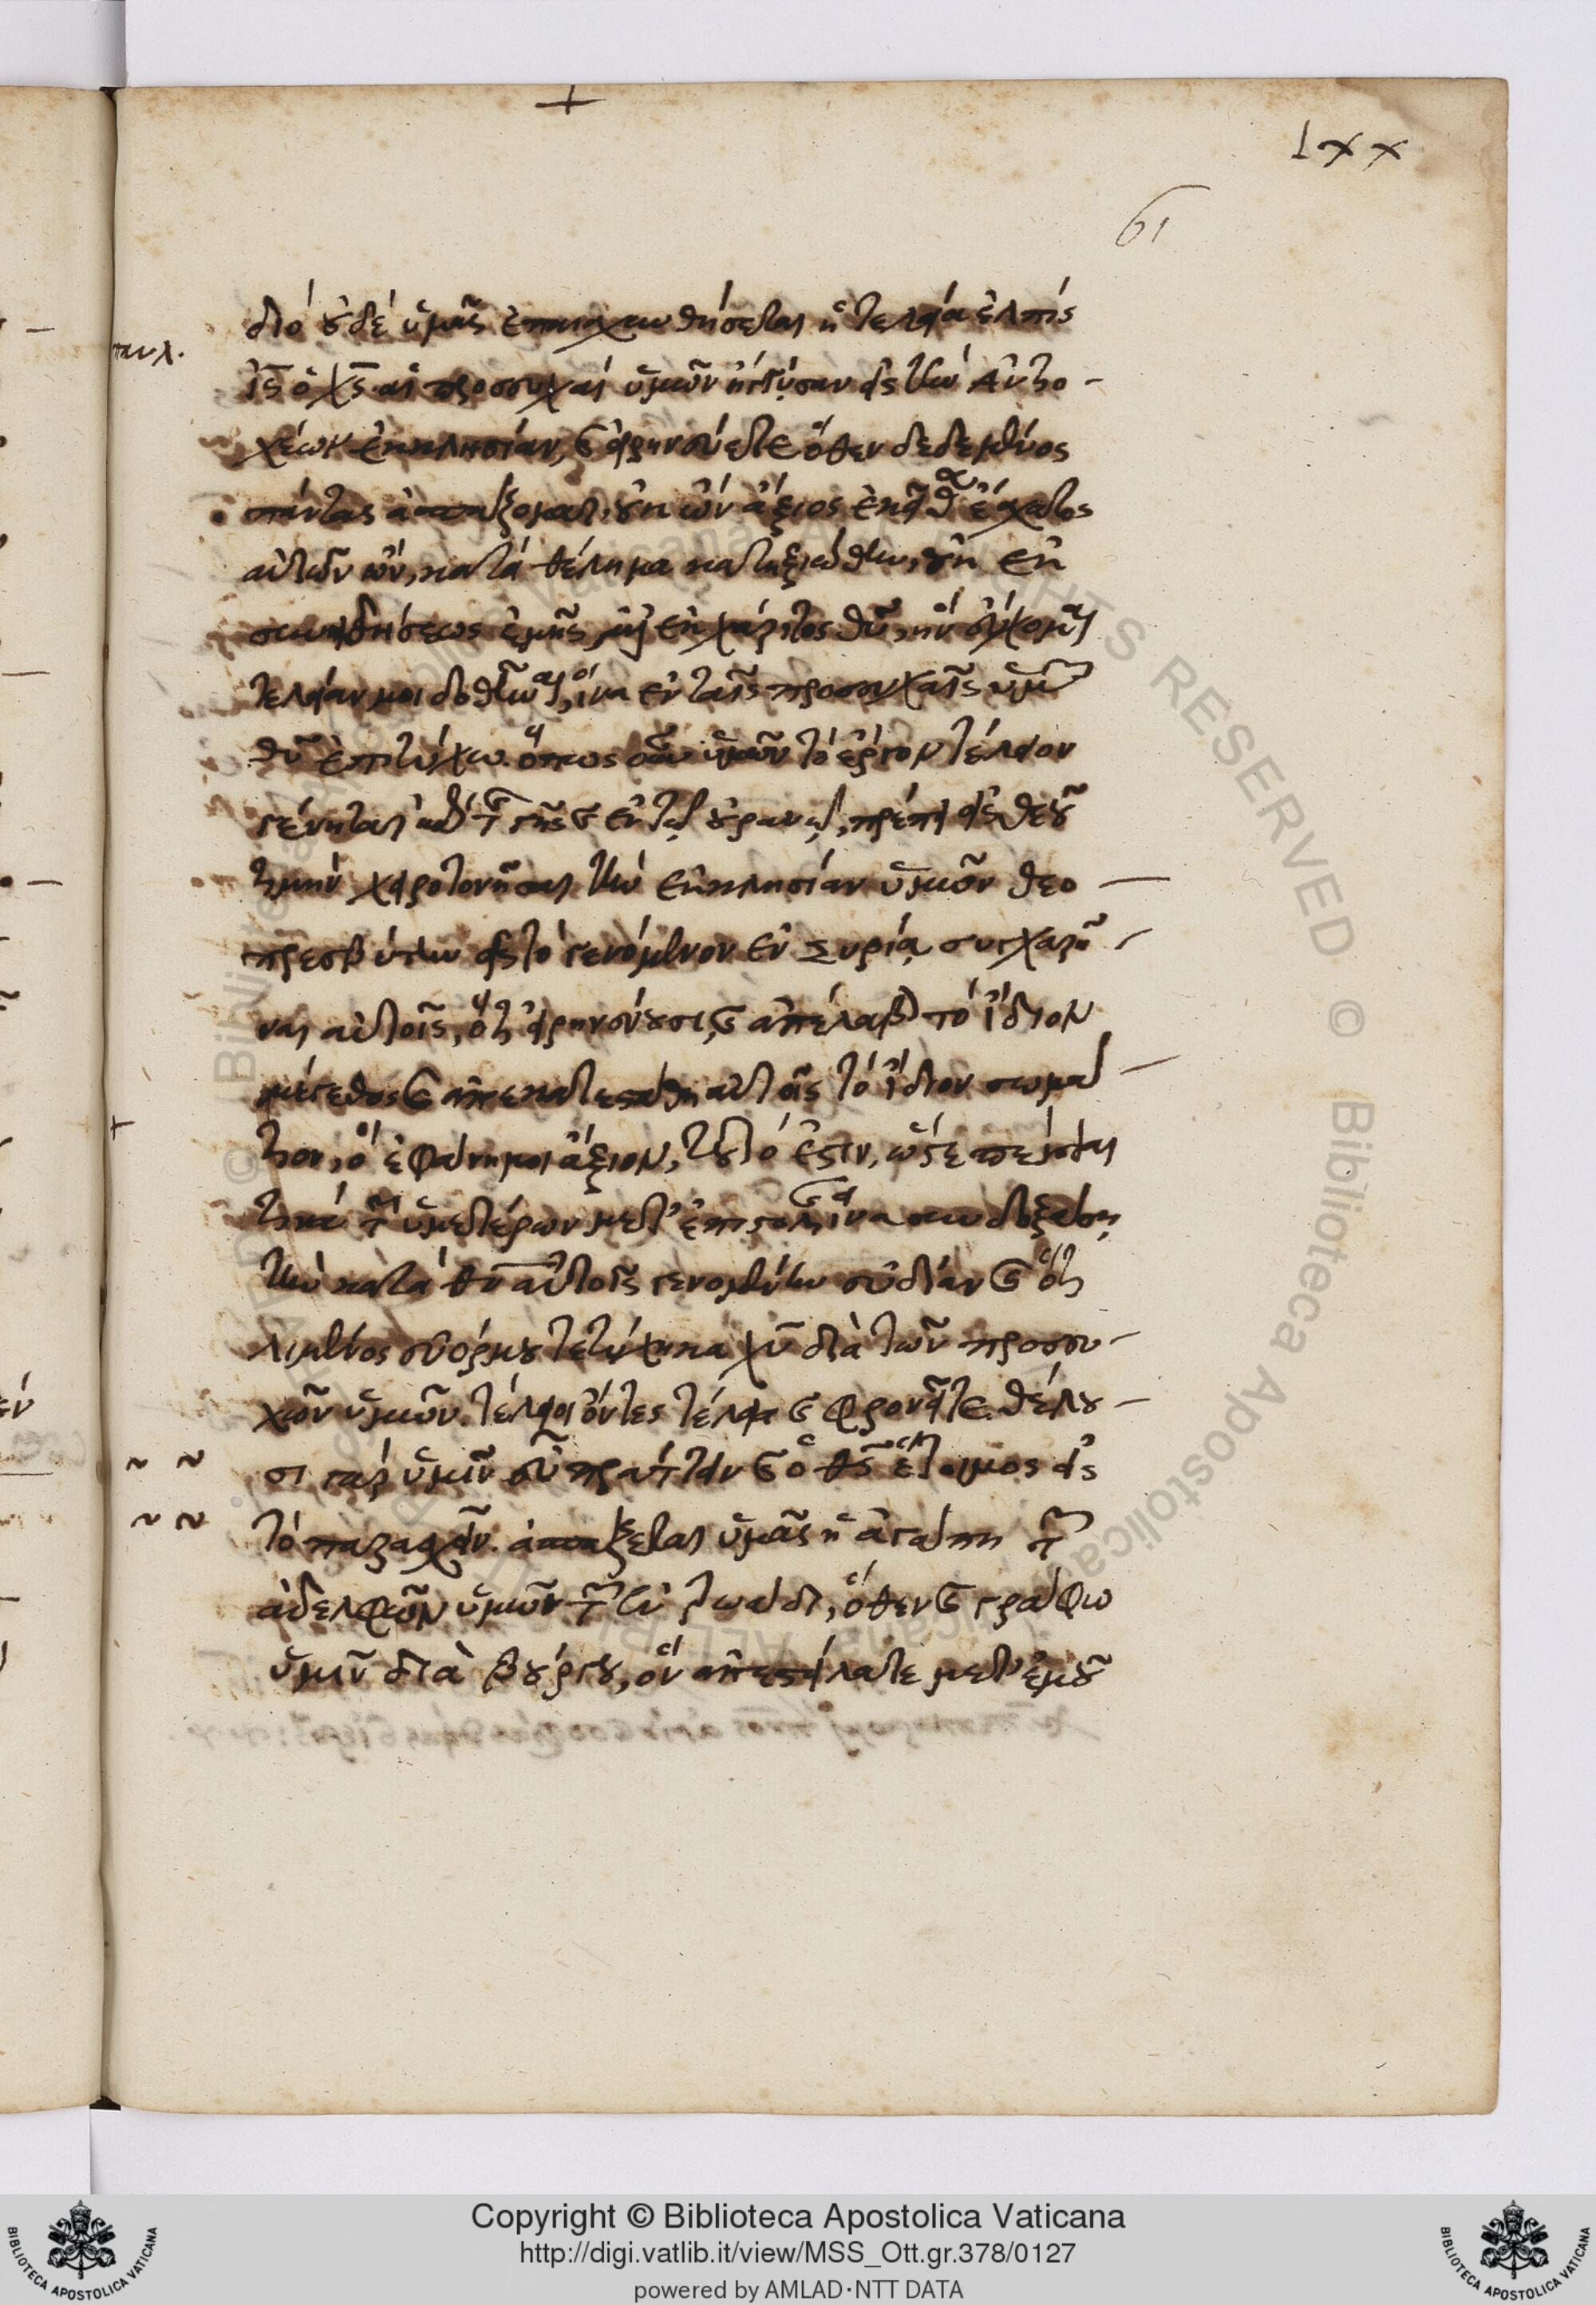 lxx
61
διό οὐδέ ὑμᾶς ἐπαισχυνθήσεται ἡ τελεία ἐλπίς
παυλ.
ἰς ὁ χς αἱ προσευχαί ὑμῶν ἤγγισαν εἰς τὴν Ἀντιο-
χέων ἐκκλησίαν, καὶ εἰρηνεύετε ὅθεν δεδεμένος
πάντας ἀσπάζομαι. οὐκ ὤν ἄξιος ἐκεῖθεν ἔσχατος
αὐτῶν ὤν, κατά θέλημα κατηξιώθην, οὐκ ἐκ
συνειδήσεως ἐμῆς ἀλλ' ἐκ χάριτος θυ, ἥν εὔχομαι
τελείαν μοι δοθῆναι, ἵνα ἐν ταῖς προσευχαῖς ὑμῶν
θυ ἐπιτύχω. ὅπως οὖν ὑμῶν τό ἔργον τέλειον
γένηται καί ἐπὶ τῆς γῆς καὶ ἐν τῷ οὐρανῷ, πρέπει εἰς θεοῦ
τιμήν χειροτονῆσαι τήν ἐκκλησίαν ὑμῶν θεο
πρεσβύτην εἰς τό γενόμενον ἐν Συρίᾳ συγχαρῆ-
ναι αὐτοῖς, ὅτι εἰρηνεύουσι, καὶ ἀπέλαβον τό ἴδιον
μέγεθος καὶ ἀπεκατεστάθη αὐτοῖς τό ἴδιον σωμα-
τιον, ὅ ἐφάνη μοι ἄξιον, τοῦτό ἐστιν, ὥστε πέμψαι
τινά τῶν ὑμετέρων μετ' ἐπιστολῆς ἵνα συνδοξάσῃ
τήν κατά θν αὐτοῖς γενομένην εὐδίαν καὶ ὅτι
λιμένος εὐόρμου τετύχηκα χυ διά τῶν προσευ-
χῶν ὑμῶν. τέλειοι ὄντες τέλεια καὶ φρονεῖτε. θέλου-
σι γάρ ὑμῖν εὖ πράττειν καὶ ὁ θς ἕτοιμος εἰς
τό παρασχεῖν. ἀσπάζεται ὑμᾶς ἡ ἀγάπη τῶν
ἀδελφῶν ὑμῶν τῶν ἐν τρωάδι, ὅθεν καὶ γράφω
ὑμῖν διὰ βούργου, ὅν ἀπεστείλατε μετ' ἐμοῦ
Copyright © Biblioteca Apostolica Vaticana
http://digi.vatlib.it/view/MSS_Ott.gr.378/0127
powered by AMLAD·NTT DATA